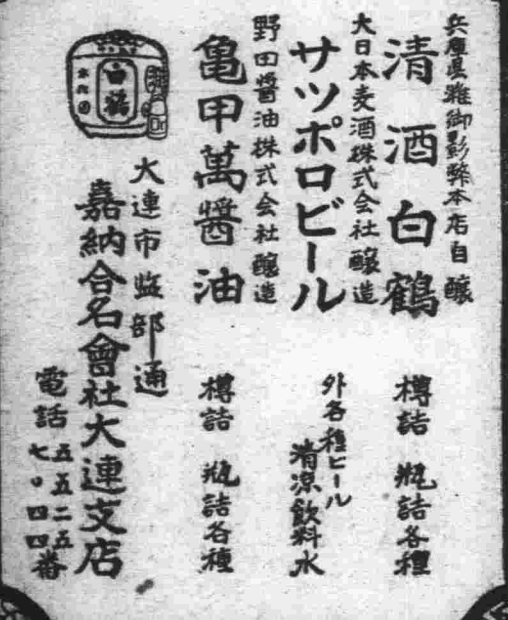 兵庫県灘御影弊本店自醸
清酒白鶴
樽詰 瓶詰各種
大日本麦酒株式会社醸造
サツポロビール
外各種ビール
清凉飲料水
野田醤油株式会社醸造
亀甲萬醤油
樽詰 瓶詰各種
白鶴
大連市監部通
嘉納合名會社大連支店
電話 五五二五
七〇四四番